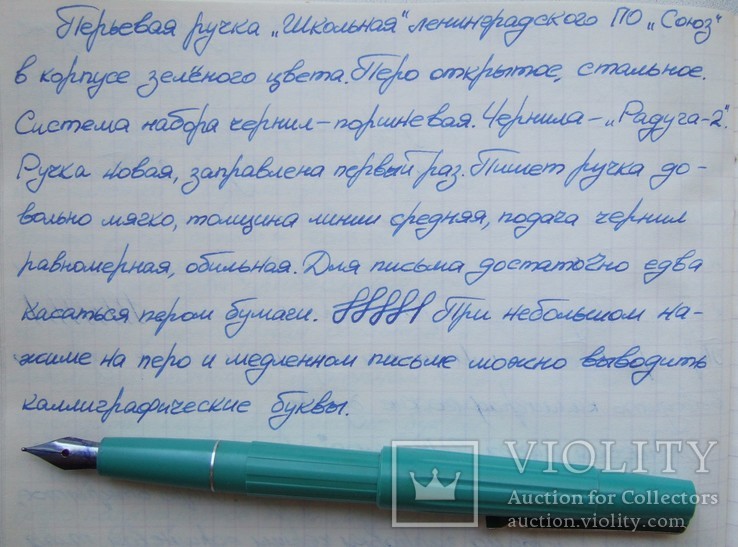 Перьевая ручка „Школьная" ленинградского ПО „Союз"
в корпусе зелёного цвета. Перо открытое, стальное.
Система набора чернил – поршневая. Чернила – „Радуга-2".
Ручка новая, заправлена первый раз. Пишет ручка до-
вольно мягко, толщина линии средняя, подача чернил
равномерная, обильная. Для письма достаточно едва
касаться пером бумаги. При небольшом на-
жиме на перо и медленном письме можно выводить
каллиграфические буквы.
VIOLITY
Auction for Collectors
auction.violity.com